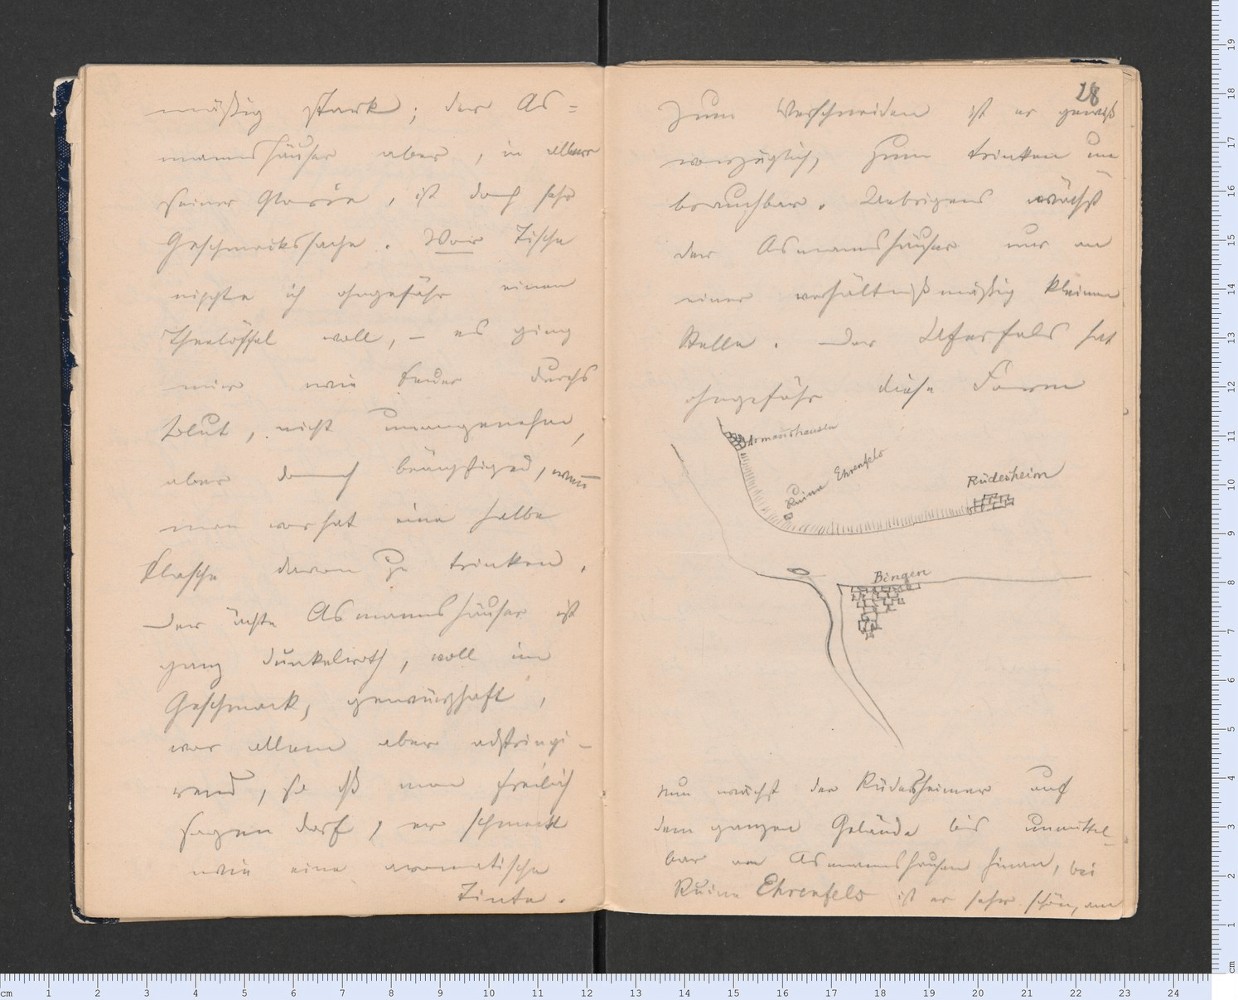 mäßig stark; der As=
mannshäuser aber, in aller
seiner Glorie, ist doch sehr
Geschmackssache. Vor Tische
nippte ich ohngefähr einen
Theelöffel voll, – es ging
mir wie Feuer durchs
Blut, nicht unangenehm,
aber doch beängstigend, wenn
man vorhat eine halbe
Flasche davon zu trinken.
Der ächte Asmannshäuser ist
ganz dunkelroth, voll im
Geschmack, gewürzhaft,
vor allem aber adstringi-
rend, so daß man freilich
sagen darf, er schmeckt
wie eine aromatische
Tinte.
28
Zum Verschneiden ist er gewiß
vorzüglich, zum trinken un
brauchbar. Uebrigens wächst
der Asmannshäuser nur an
einer verhältnißmäßig kleinen
Stelle. Der Uferfels hat
ohngefähr diese Form
Asmanshausen
Ruine Ehrenfels
Rüdesheim
Bingen
Nun wächst der Rüdesheimer auf
dem ganzen Gelände bis unmittel-
bar an Asmannshausen hinan, bei
Ruine Ehrenfels ist er sehr schön, an